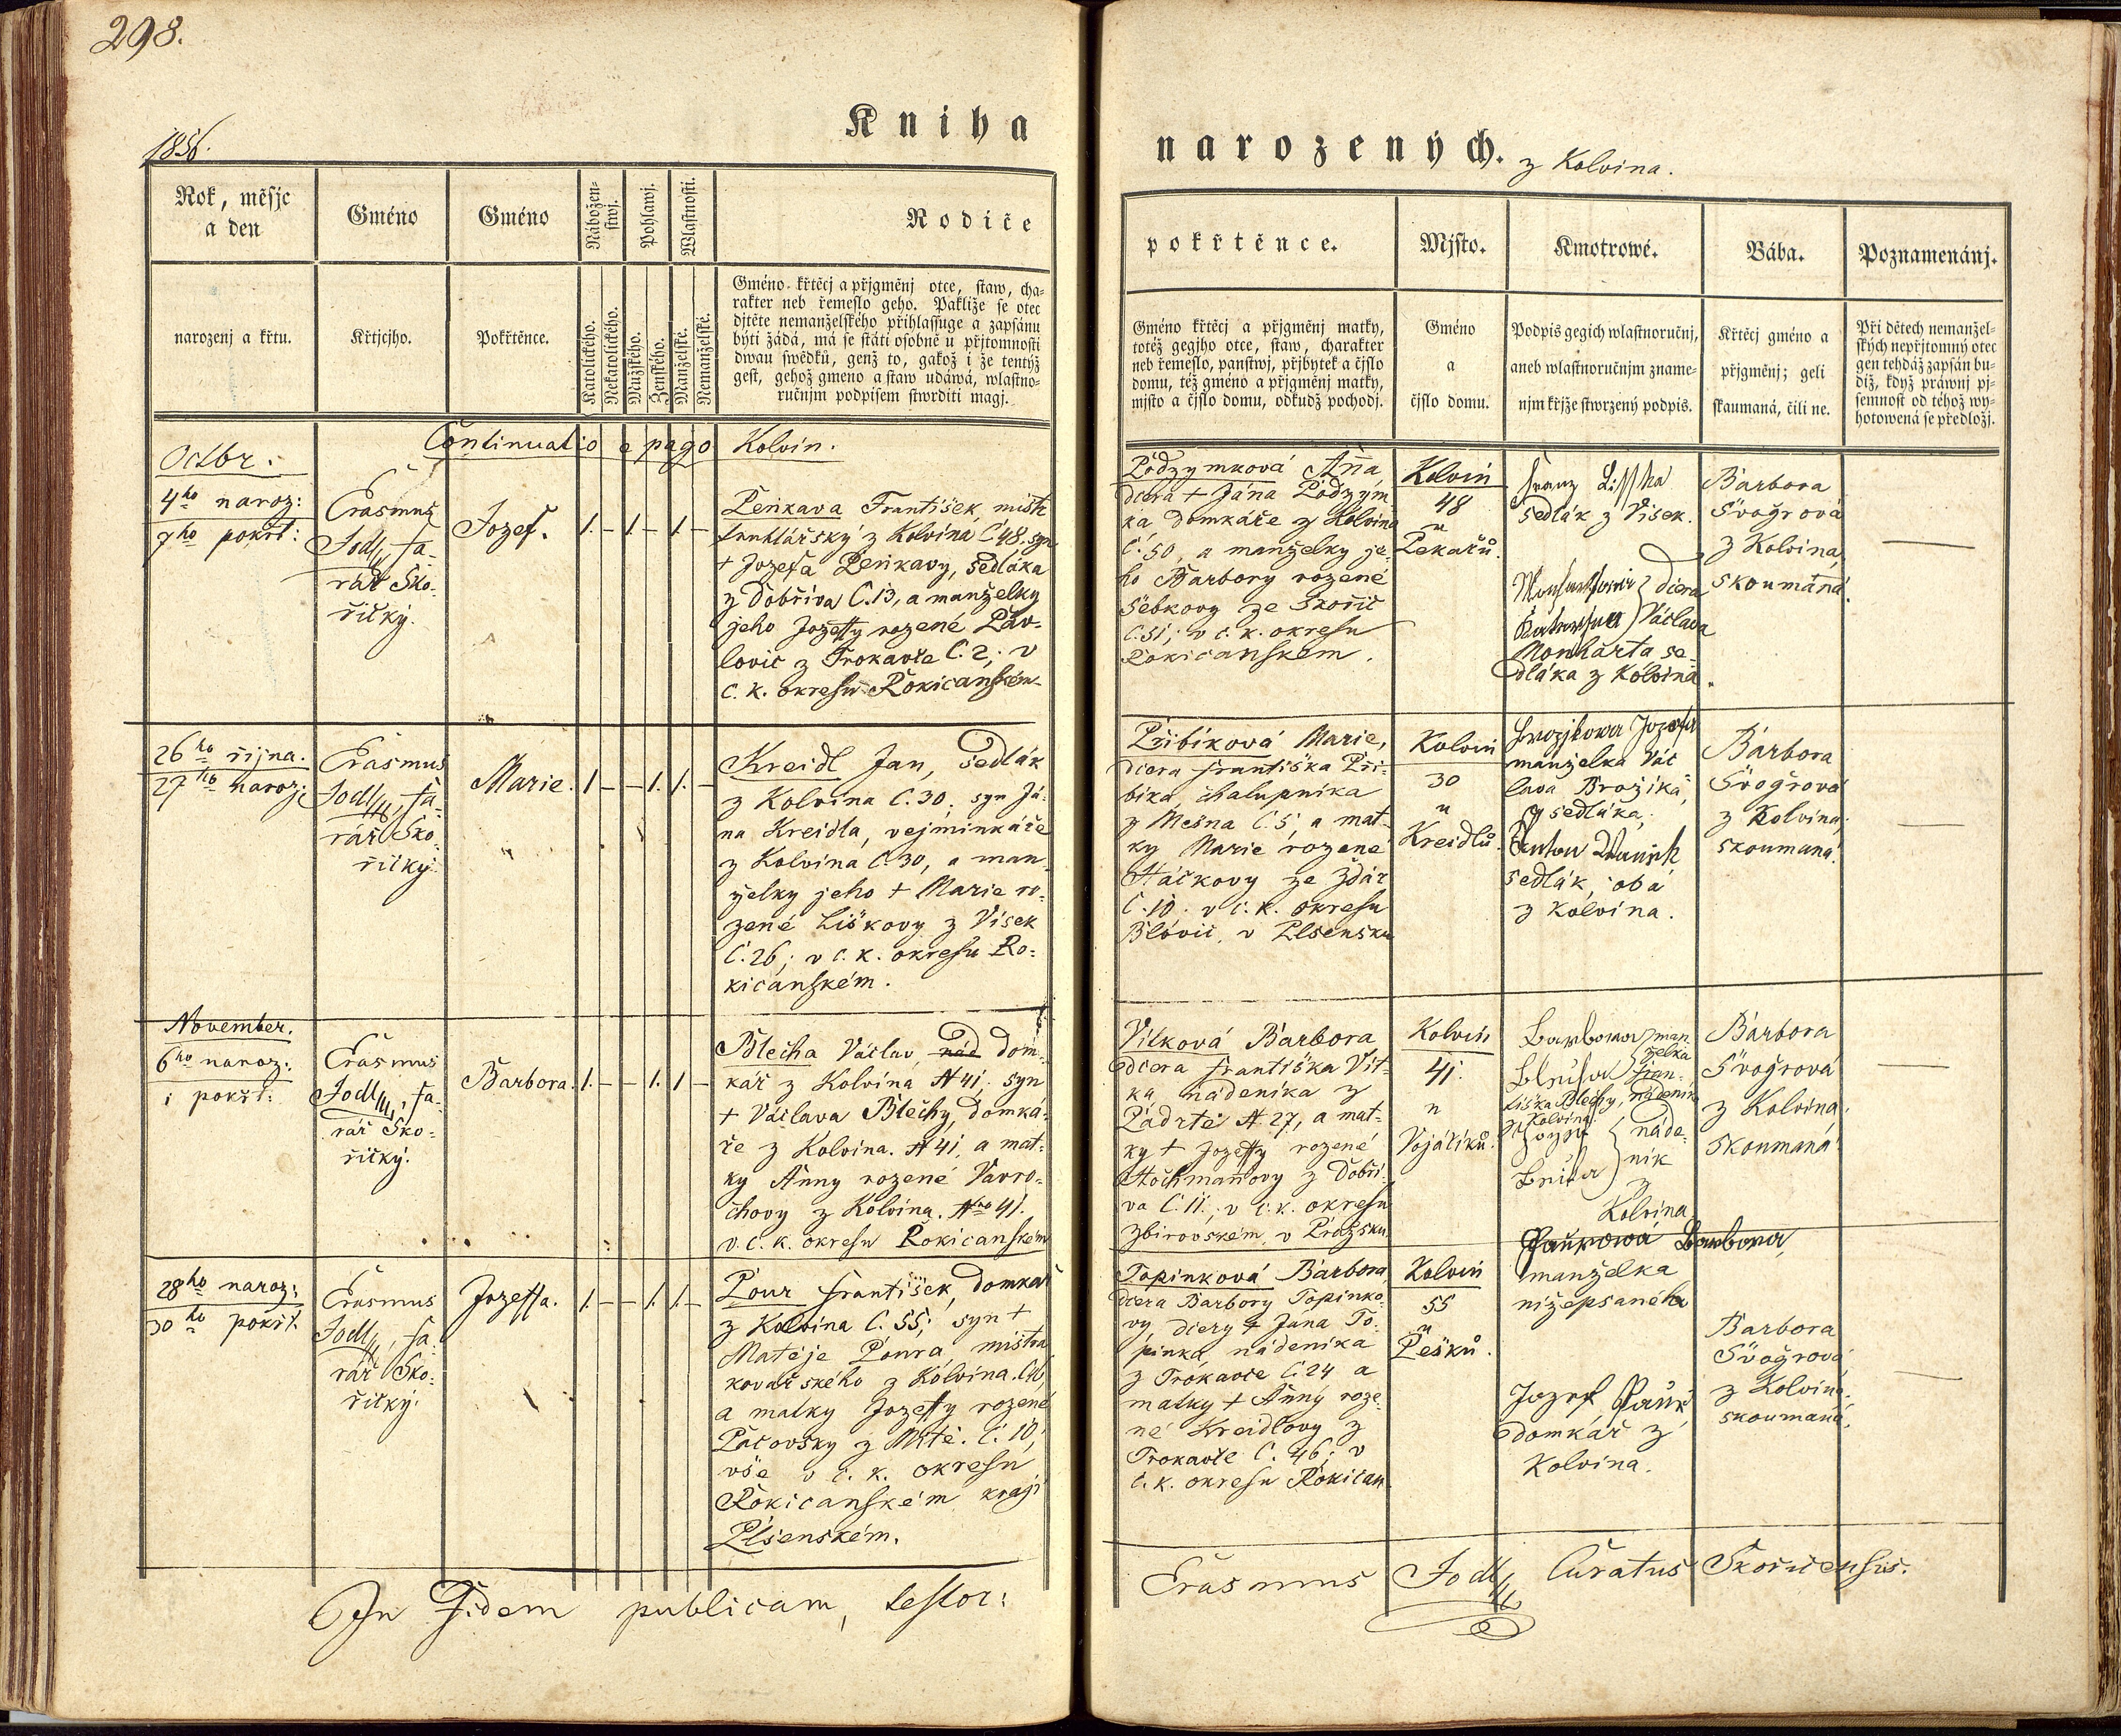 298.
Kniha
narozených. z Kolvina.
1856.
Rok, měsjc
a den
Gméno
Gméno
Nábožen-
stwj.
Pohlawj.
Wlastnosti.
Rodiče
narozenj a křtu.
Křtjcjho.
Pokřtěnce.
Katolického.
Nekatolického.
Mužského.
Ženského.
Manželské.
Nemanželské.
Gméno křtěcj a přjgměnj otce, staw, cha-
rakter neb řemeslo geho. Pakliže se otec
djtěte nemanželského přihlassuge a zapsánu
býti žádá, má se státi osobně u přjtomnosti
dwau swědků, genž to, gakož i že tentýž
gest, gehož gmeno a staw udáwá, wlastno-
ručnjm podpisem stwrditi magj.
pokřtěnce.
Mjsto.
Kmotrowé.
Bába.
Poznamenánj.
Gméno křtěcj a přjgměnj matky,
totéž gegjho otce, staw, charakter
neb řemeslo, panstwj, přjbytek a čjslo
domu, též gméno a přjgměnj matky,
mjsto a čjslo domu, odkudž pochodj.
Gméno
a
čjslo domu.
Podpis gegich wlastnoručnj,
aneb wlastnoručnjm zname-
njm křjže stwrzený podpis.
Křtěcj gméno a
přjgměnj; geli
skaumaná, čili ne.
Při dětech nemanžel-
ských nepřjtomný otec
gen tehdáž zapsán bu-
diž, když práwnj pj-
semnost od téhož wy-
hotowená se předložj.
Continuatio e pago Kolvin.
Octbr.
4ho naroz:
7ho pokřt:
Erasmus
Jodl, fa-
rář Sko-
řičky.
Jozef.
1. – 1. – 1. –
Peňkava František, mistr
truhlářský z Kolvína Č 48, syn
+ Jozefa Peňkavy, sedláka
z Dobříva Č. 13, a manželky
jeho Jozeffy rozené Páv-
lovic z Trokavce Č. 2; v
c. k. okresu Rokicanském
Podzymková Anna,
dcera + Jána Podzým
ka domkáře z Kolvína
Č. 50, a manželky je-
ho Barbory rozené
Šebkovy ze Skořic
Č. 51; v c. k. okresu
Rokicanském.
Kolvin
48
u
Pekařů.
Franz Lisska
sedlák z Vísek.
dcera
Václava
Monharta se-
dláka z Kolvína.
Barbora
Švogrova
z Kolvína,
skoumaná.
—
26ho října.
27ho naroz:
Erasmus
Jodl, fa-
rář Sko-
řičky.
Marie.
1. – – 1. 1. –
Kreidl Jan, sedlák
z Kolvína Č. 30, syn Já-
na Kreidla, vejminkáře
z Kolvína Č. 30, a man-
želky jeho + Marie ro-
zené Liškovy z Vísek
Č. 26; v c. k. okresu Ro-
kicanském.
Přibíková Marie,
dcera Františka Při-
bíka, chalupníka
z Mešna Č. 5, a mat-
ky Marie rozené
Háčkovy ze Ždár
Č. 10; v c. k. okresu
Blovic, v Plsensku
Kolvin
30
u
Kreidlů.
Brozjkowa Jozefa
manželka Vác
lava Brožíka,
sedláka,
Anton
sedlák, oba
z Kolvína.
Bárbora
Švogrová
z Kolvína;
skoumaná.
—
November.
6ho naroz:
i pokřt:
Erasmus
Jodl, fa-
rář Sko-
řičky.
Barbora.
1. – – 1. 1 –
Blecha Václav, nád dom-
kář z Kolvína N 41; syn
+ Václava Blechy, domká-
ře z Kolvína. N 41, a mat-
ky Anny rozené Vavro-
chovy z Kolvína. Nro 41.
v. c. k. okresu Rokicanském
Vítková Barbora
dcera Františka Vít-
ka, nádeníka z
Padrtě N 27, a mat-
ky + Jozeffy rozené
Hochmanovy z Dobří-
va Č. 11., v c. k. okresu
zbirovském v Pražsku
Kolvin
41.
u
Vojáčků.
Barbora man
želka
Fran-
tiška Blechy, nádeník
z Kolvína.
náde-
ník
z
Kolvína
Bárbora
Švogrová
z Kolvína.
skoumaná.
—
28ho naroz:
30ho pokřt.
Erasmus
Jodl, fa-
rář Sko-
řičky.
Jozeffa.
1. – – 1. 1. –
Pour František, domkář
z Kolvína Č. 55; syn +
Matěje Poura mistra
kovařského z Kolvína.
a matky Jozeffy rozené
Pacovsky z Mítě. Č. 10;
vše v c. k. okresu
Rokicanském kraji
Plsenském.
Topinková Bárbora
dcera Barbory Topinko-
vy dcery + Jana To-
pinka, nádeníka
z Trokavce Č. 24 a
matky + Anny roze-
né Kreidlovy z
Trokavce Č. 46; v
c. k. okresu Rokican
Kolvin
55
u
Pešků.
Paurowá Barbora,
manželka
nížepsaného
Jozef Paur
domkář z
Kolvína.
Barbora
Švogrová
z Kolvína;
skoumaná.
—
In Fidem publicam, testor:
Erasmus Jodl Curatus Skoricensis.